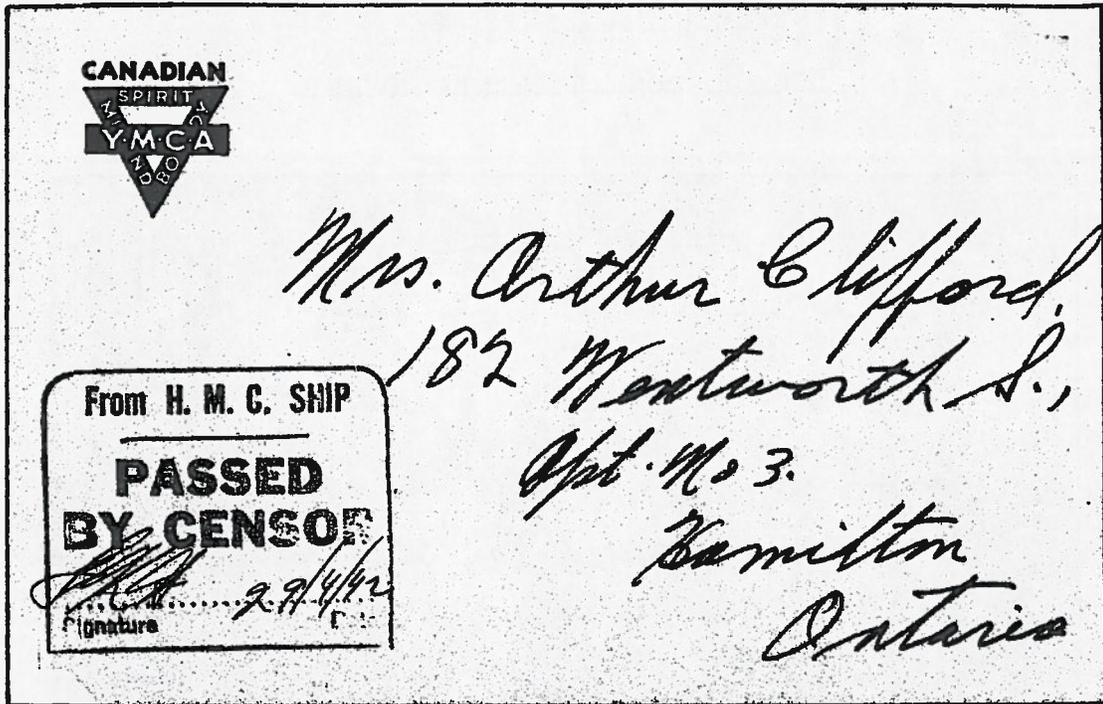 CANADIAN
SPIRIT
MIND
BODY
Y·M·C·A
Mrs. Arthur Clifford,
182 Wentworth S.,
Apt. No 3.
Hamilton
Ontario
From H. M. C. SHIP
PASSED
BY CENSOR
29/4/42
Signature